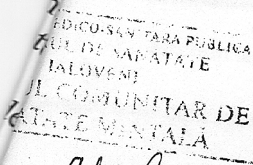 EDICO-SANITARA PUBLICA
UL DE SANATATE
IALOVENI
UL COMUNITAR DE
ATATE MINTALĂ